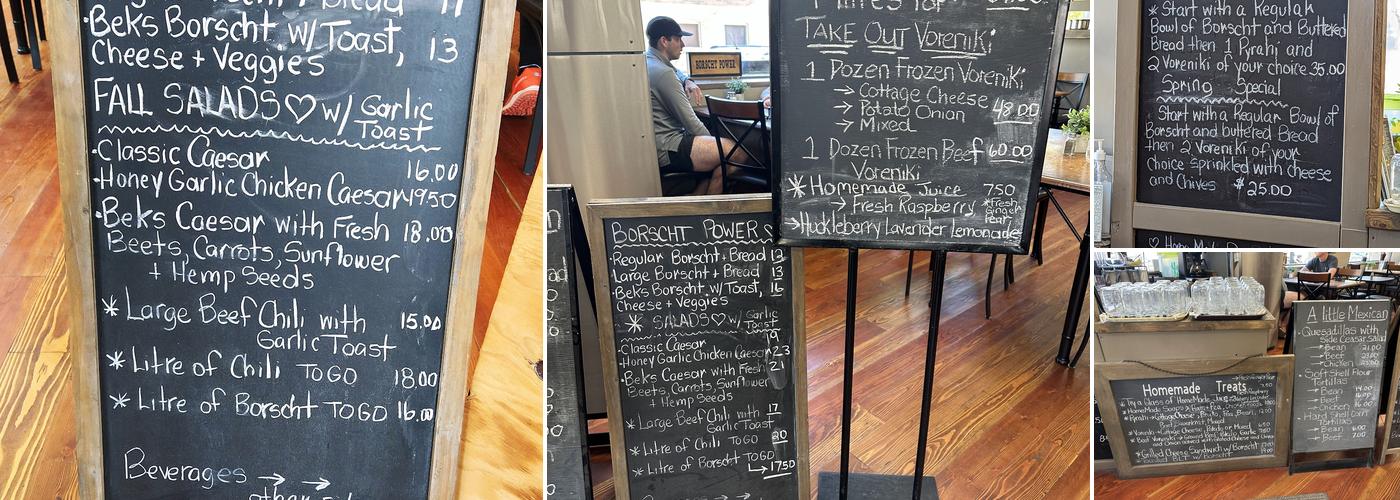 Bread 11
·Beks Borscht w/Toast, 13
Cheese + Veggies
FALL SALADS♡ w/ Garlic
Toast
·Classic Caesar 16.00
·Honey Garlic Chicken Caesar 19.50
·Beks Caesar with Fresh 18.00
Beets, Carrots, Sunflower
+ Hemp Seeds
* Large Beef Chili with 15.00
Garlic Toast
* Litre of Chili TO GO 18.00
* Litre of Borscht TO GO 16.00
Beverages → →
BORSCHT POWER
TAKE OUT Voreniki
1 Dozen Frozen Voreniki
→ Cottage Cheese
→ Potato Onion 48.00
→ Mixed
1 Dozen Frozen Beef 60.00
Voreniki
* Homemade Juice 7.50
→ Fresh Raspberry *Fresh
ginger
pear
→ Huckleberry Lavender Lemonade
BORSCHT POWER♡
·Regular Borscht + Bread 12
·Large Borscht + Bread 13
·Beks Borscht w/ Toast, 16
Cheese + Veggies
* SALADS♡ w/ Garlic
Toast
·Classic Caesar 19
·Honey Garlic Chicken Caesar 23
·Beks Caesar with Fresh 21
Beets, Carrots, Sunflower
+ Hemp Seeds
* Large Beef Chili with 17
Garlic Toast
* Litre of Chili TO GO 20
* Litre of Borscht TO GO
→ 17.50
* Start with a Regular
Bowl of Borscht and Buttered
Bread then 1 Pyrahi and
2 Voreniki of your choice 35.00
Spring Special
Start with a Regular Bowl of
Borscht and buttered Bread
then 2 Voreniki of your
choice sprinkled with cheese
and Chives $25.00
Homemade Treats
* Try a Glass of HomeMade Juice
* Grilled Cheese Sandwich w/ Borscht
BLT w/ Borscht
A little Mexican
Quesadillas with
Side Ceasar Salad
→ Bean 21.00
→ Beef
→ Chicken
Soft Shell Flour
Tortillas
→ Bean
→ Beef
→ Chicken
Hard Shell Corn
Tortillas
→ Bean
→ Beef 7.00